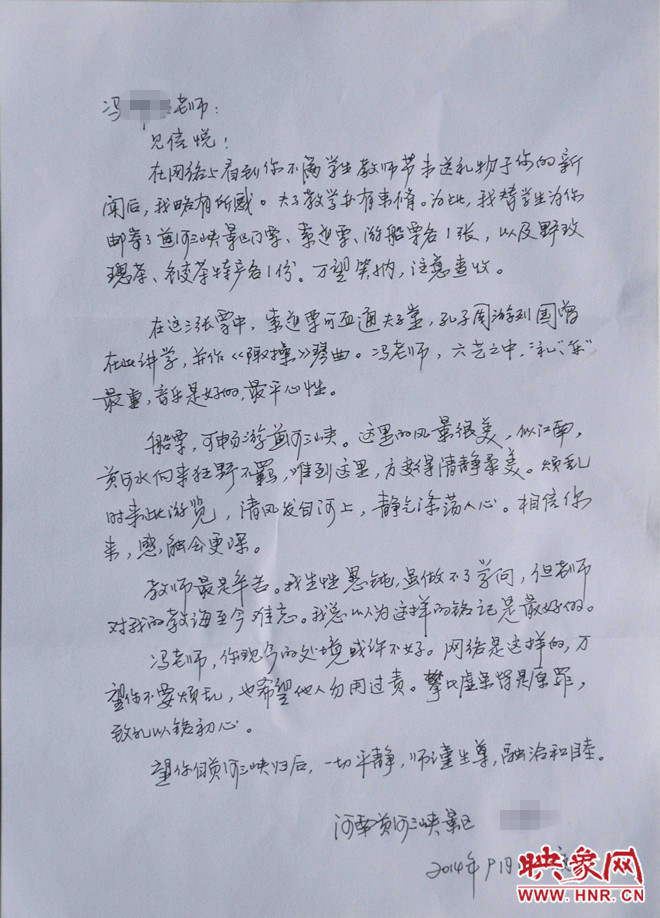 冯 老师：
见信悦！
在网络上看到你不满学生教师节未送礼物于你的新
闻后，我略有所感。夫子教学亦有束脩。为此，我替学生为你
邮寄了黄河三峡景区门票、索道票、游船票各1张，以及野玫
瑰茶、冬凌茶特产各1份。万望笑纳，注意查收。
在这三张票中，索道票可直通夫子堂，孔子周游列国曾
在此讲学，并作《陬操》琴曲。冯老师，六艺之中，"礼""乐"
最重，音乐是好的，最平心性。
船票，可畅游黄河三峡。这里的风景很美，似江南，
黄河水向来狂野不羁，唯到这里，方变得清静柔美。烦乱
时来此游览，清风发自河上，静气涤荡人心。相信你
来，感触会更深。
教师最是辛苦。我生性愚钝，虽做不了学问，但老师
对我的教诲至今难忘。我总以为这样的铭记是最好的。
冯老师，你现今的处境或许不好。网络是这样的，万
望你不要烦乱，也希望他人勿用过责。攀比虚荣皆是原罪，
致礼以铭初心。
望你自黄河三峡归后，一切平静，师谨生尊，融洽和睦。
河南黄河三峡景区
2014年9月
映象网
WWW.HNR.CN